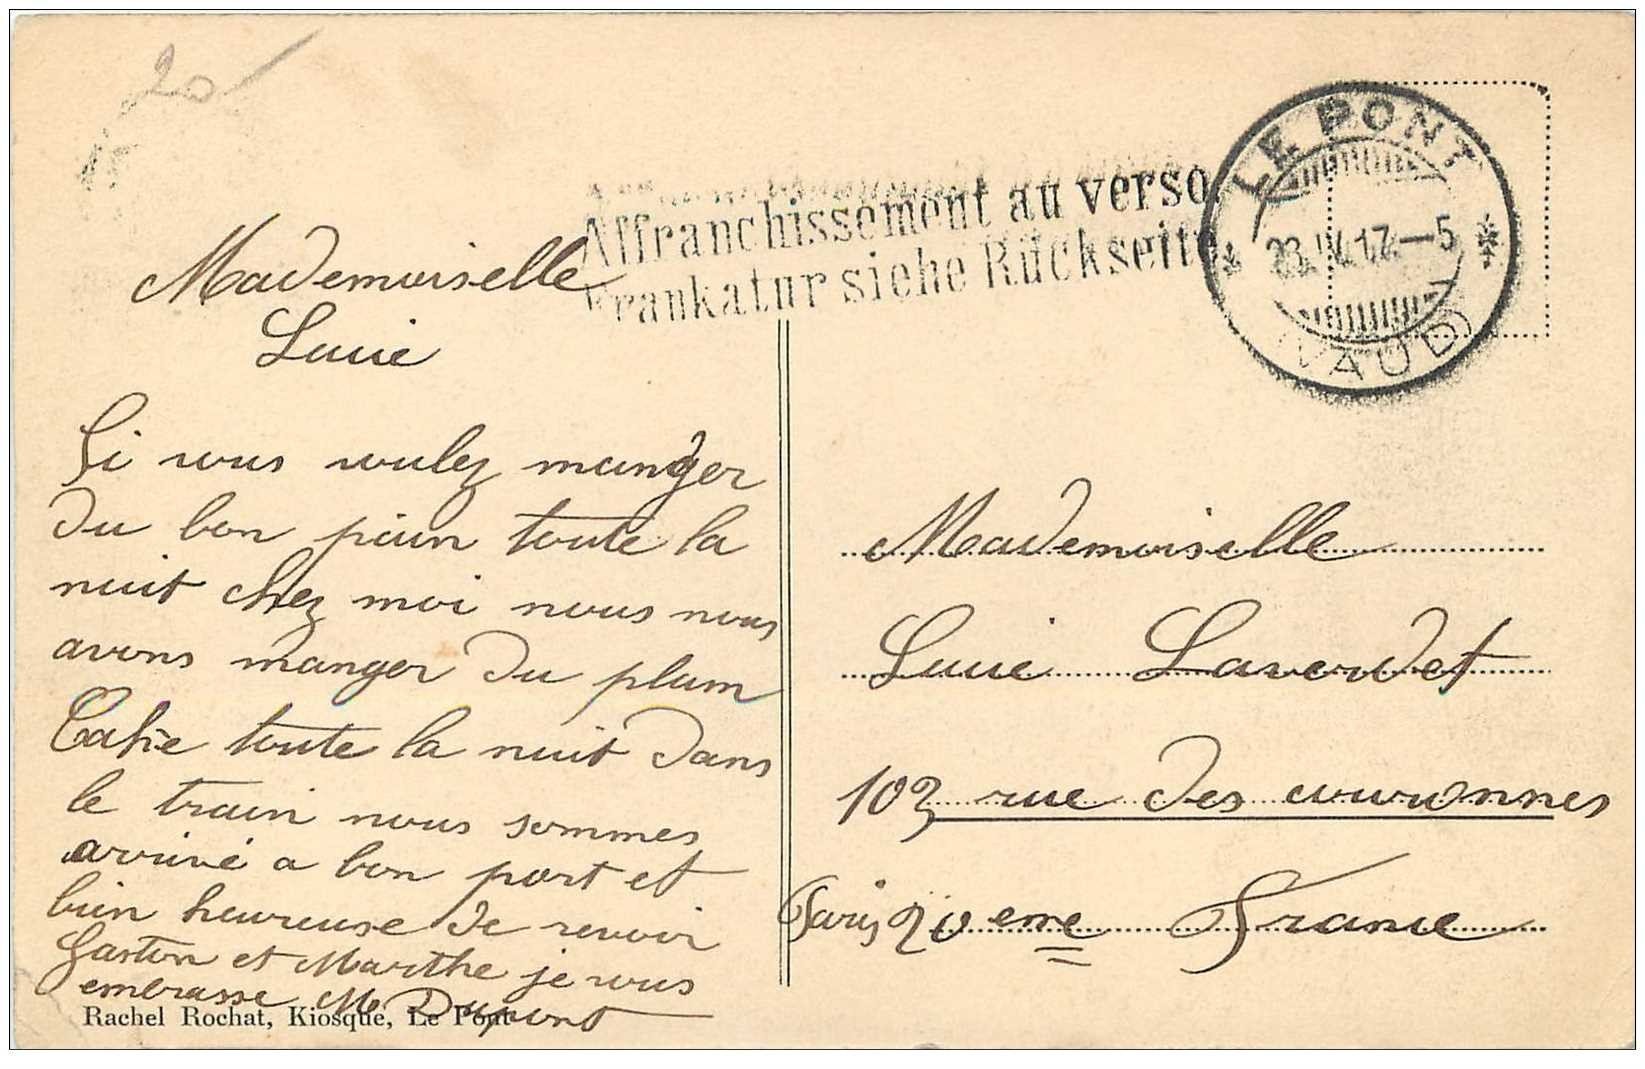 20
15
Affranchissement au verso.
Frankatur siehe Rückseite
LE PONT
23.IV.17.—5
(VAUD)
Mademoiselle
Lucie
Si vous voulez manger
du bon pain toute la
nuit chez moi nous nous
avons manger du plum
Cake toute la nuit dans
le train nous sommes
arrivé a bon port et
bien heureuse de revoir
Gaston et Marthe je vous
embrasse M Dupont
Rachel Rochat, Kiosque, Le Pont
Mademoiselle
Lucie Laverdet
103 rue des couronnes
Paris 20eme France